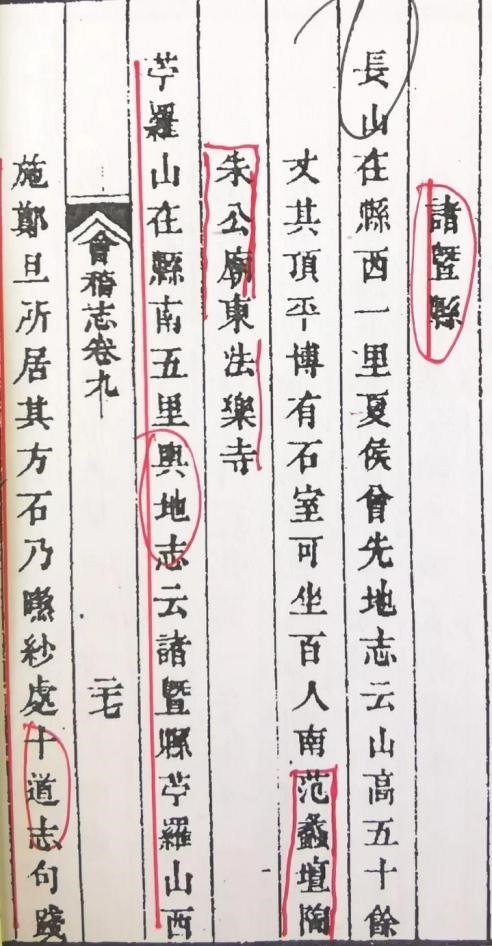 諸暨縣
長山在縣西一里夏侯曾先地志云山高五十餘
丈其頂平博有石室可坐百人南范蠡壇陶
朱公廟東法樂寺
苧羅山在縣南五里輿地志云諸暨縣苧羅山西
會稽志卷九 二七
施鄭旦所居其方石乃曬紗處十道志句踐